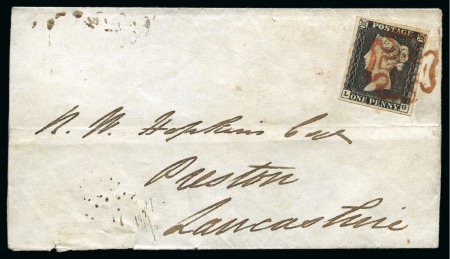 POSTAGE
ONE PENNY
L G
N. W. Hopkins Esqr
Preston
Lancashire